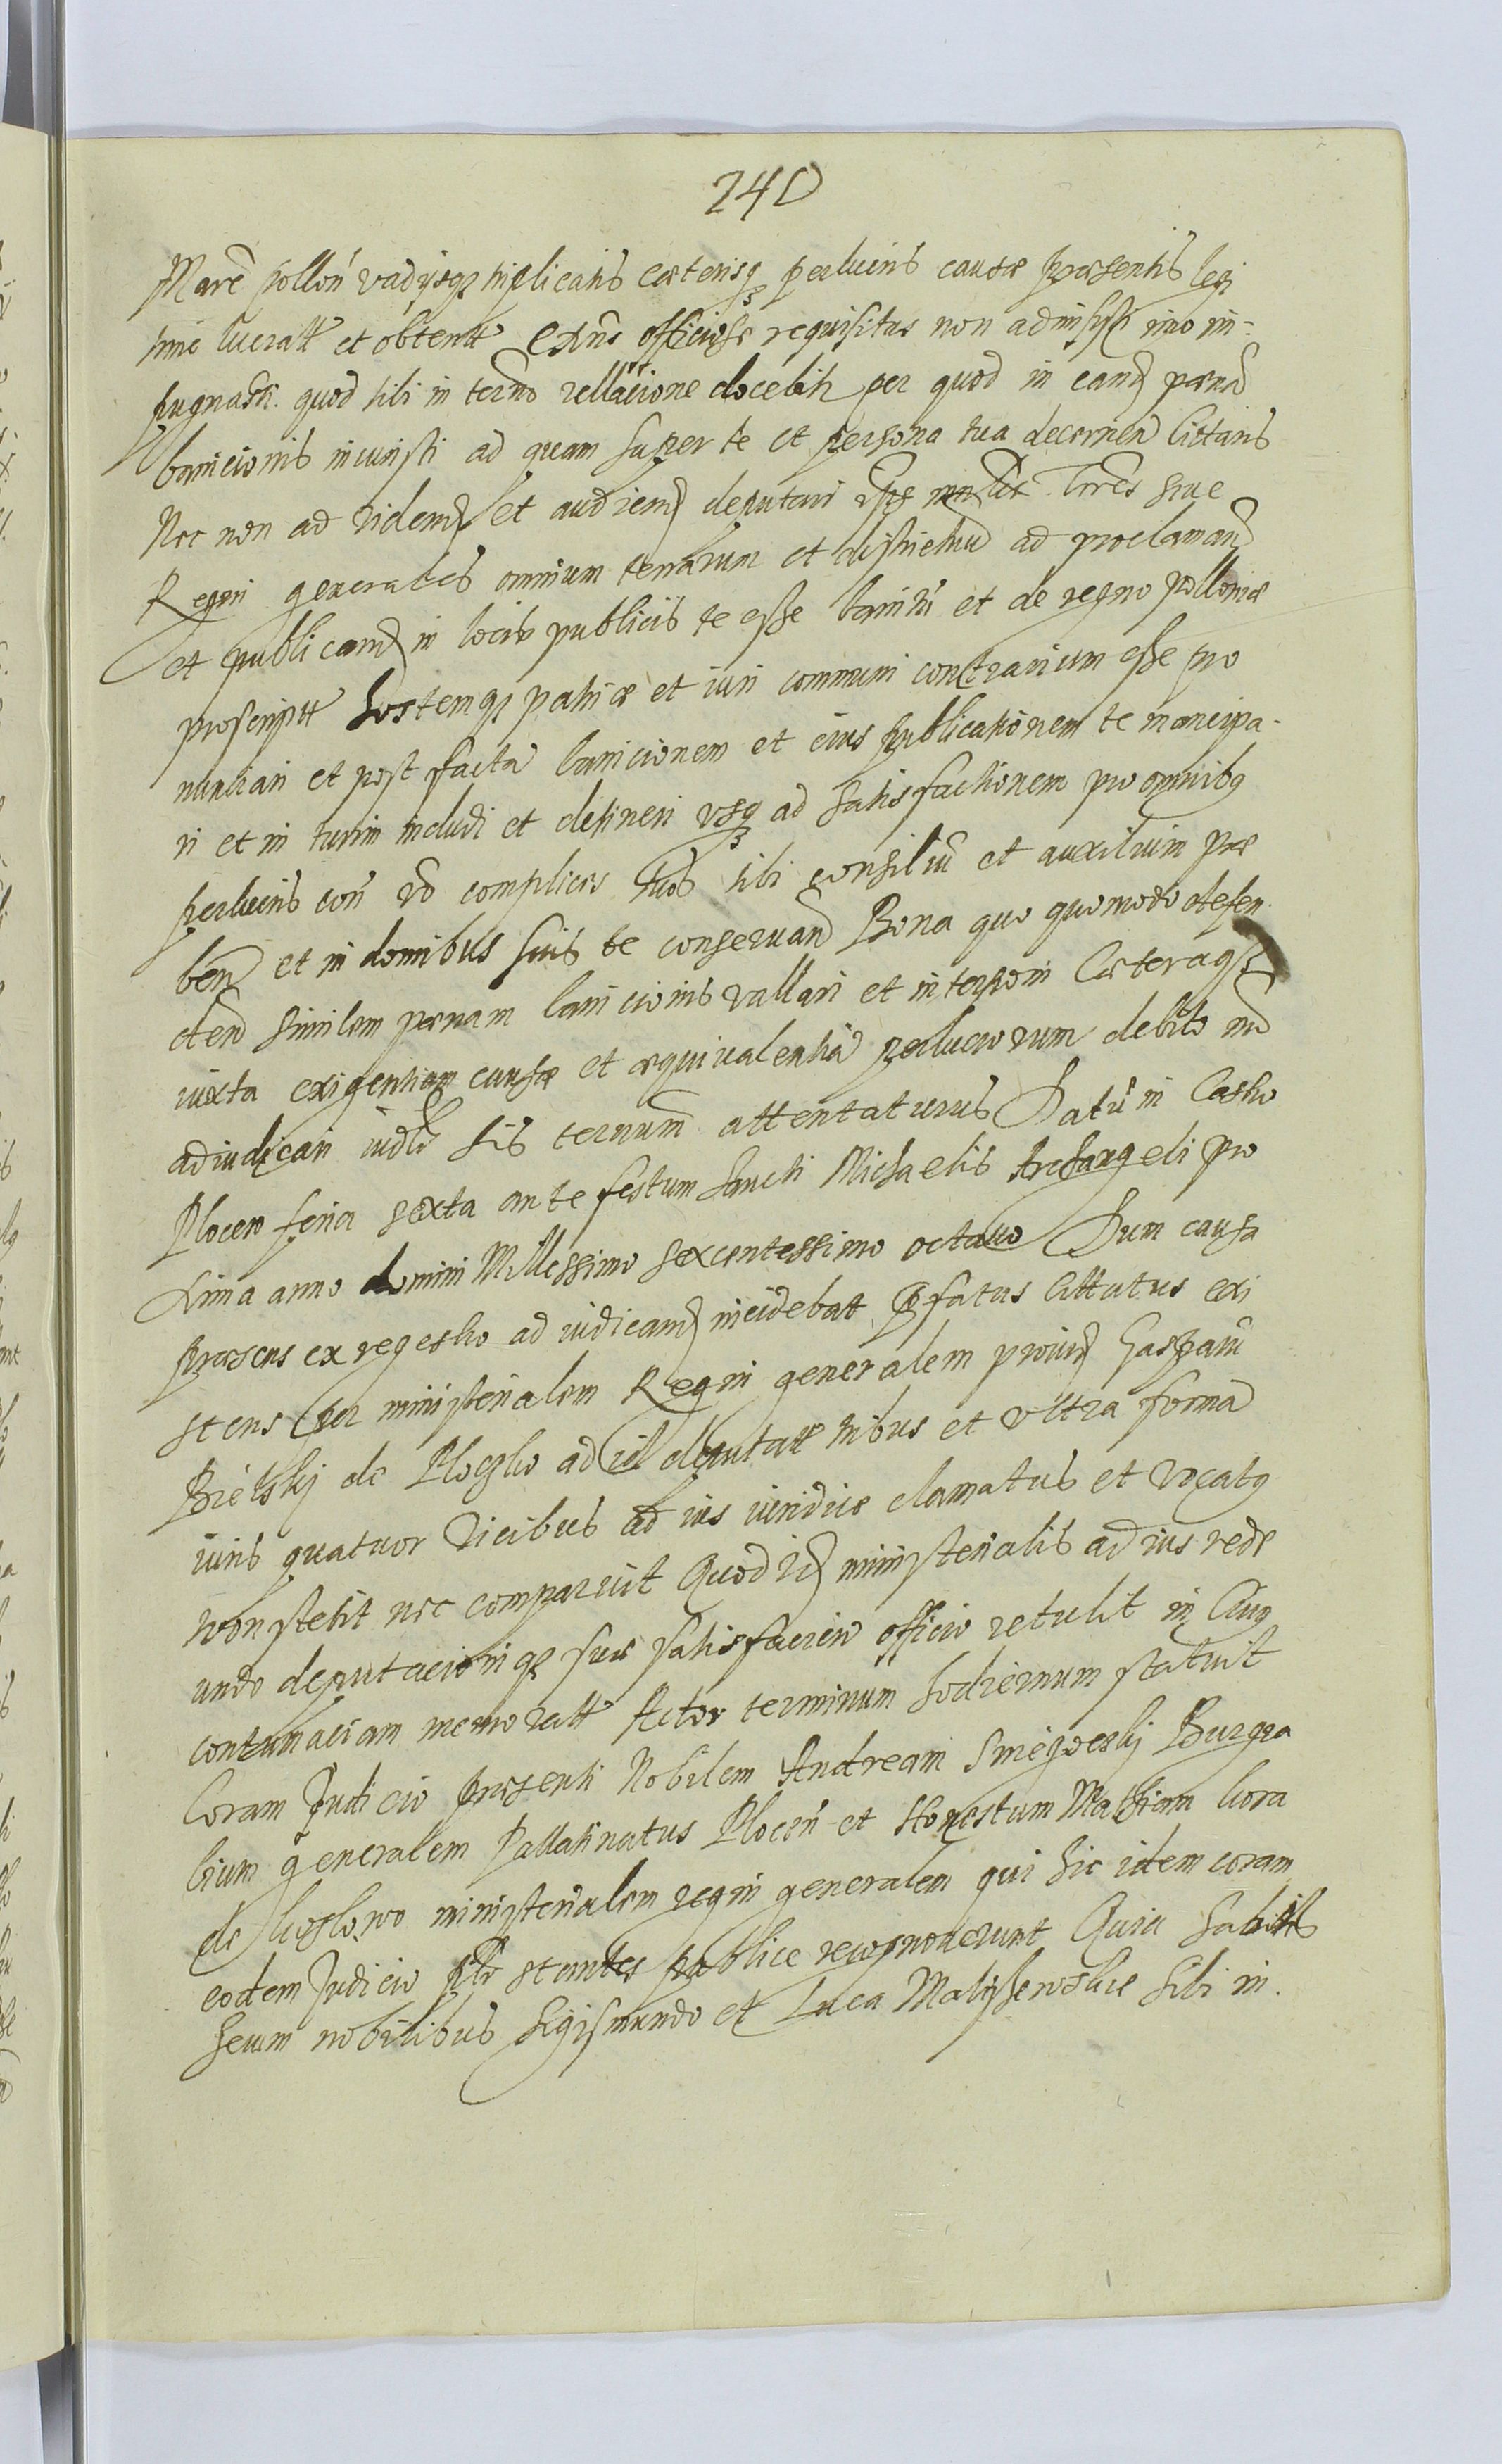 240
Marc pollon vadysq triplicatis caeterisq perlucris causae praesentis legi
time lucratt et obtentt Extns officiose requisitus non admisisti imo in-
pugnasti. quod tibi in termo rellacione docebitr per quod in eand paena
banicionis incuristi ad quam super te et persona tua decernen citaris
Nec non ad videnđ et audienđ deputari siue
Regni generales omnium terrarum et districtuu ad proclamand
et publicand in locis publicis te esse banitu et de regno polloniae
proscriptt hostemq patriae et iuri communi contrarium esse pro
nuntiari et post facta banicionem et eius publicationem te mancipa-
ri et in turim includi et detineri vsq ad satisfactionem pro omnibq
perlucris con vo complices tuos tibi consiliu et auxilium prae
ben et in domibus suis te conseruand Bona quo quomodo defen
den similem paenam banicionis vallari et interponi Caeteraq
iuxta exigentiam causae et aequivalentia perlucrorum debito mo
adiudicari iudlr sis termum attentaturus Datu in Castro
Plocen feria sexta ante festum Sancti Michaelis Archangeli pro
xima anno domini Millessimo sexcentessimo octauo Dum causa
praesens ex regestro ad iudicand incidebatt pfatus Cittatus exi
stens per ministerialem Regni generalem prouid Gasparu
Bielski de Ploczko ad id deputatt tribus et vltra forma
iuris quatuor vicibus ad ius iuridice clamatus et vocatq
non stetit nec comparuit Quod id ministerialis ad ius rede
undo deputacioniq suae satisfacien officio retulit in Cuiq
contumaciam memoratt Actor terminum hodiernum statuit
Coram Judicio praesenti Nobilem Andream Smigoeski Burgra
bium generalem Pallatinatus Plocen et Honestum Mathiam hora
de koslowo ministerialem regni generalem qui hic idem coram
eodem Judicio plr stantes publice recognouerunt Quia habitis
secum nobilibus Sigismundo et Luca Maliszewskie sibi in.